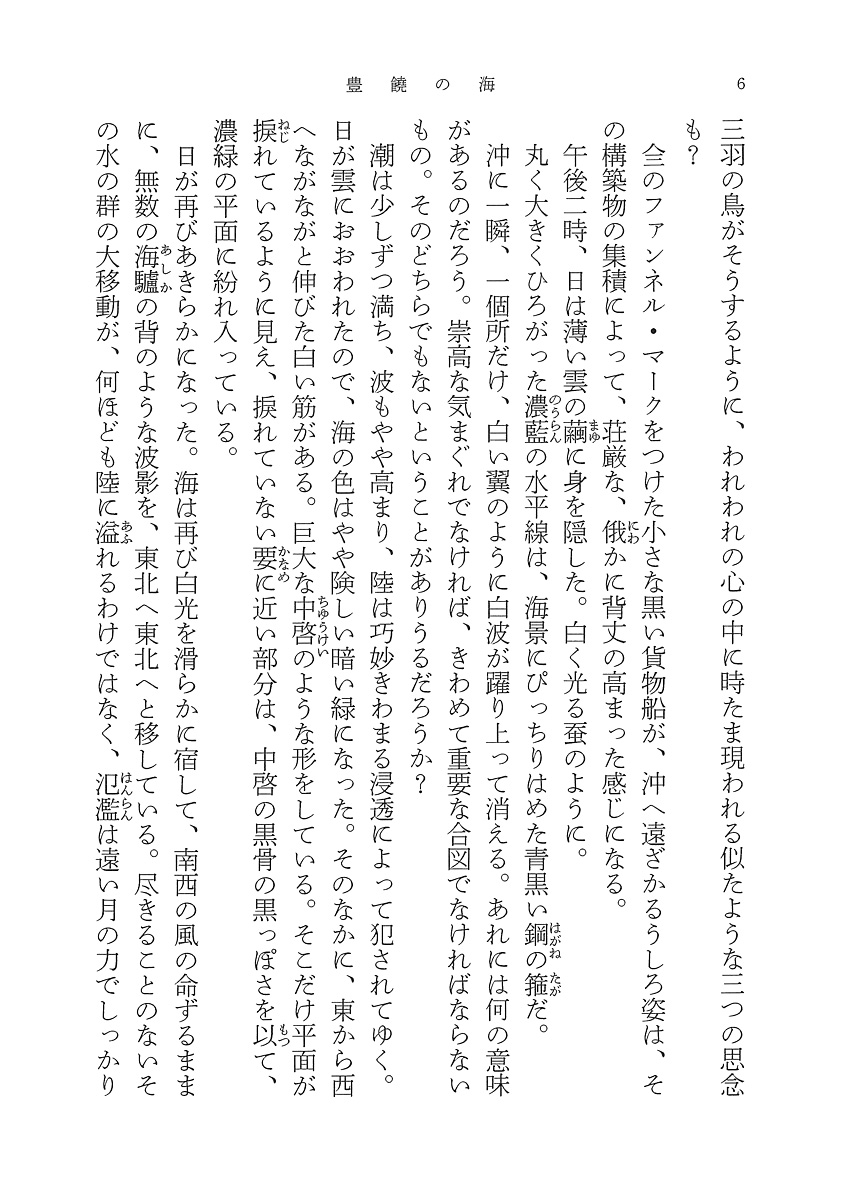 豊饒の海
6
三羽の鳥がそうするように、われわれの心の中に時たま現われる似たような三つの思念
も？
　仝のファンネル・マークをつけた小さな黒い貨物船が、沖へ遠ざかるうしろ姿は、そ
の構築物の集積によって、荘厳な、俄かに背丈の高まった感じになる。
　午後二時、日は薄い雲の繭に身を隠した。白く光る蚕のように。
　丸く大きくひろがった濃藍の水平線は、海景にぴっちりはめた青黒い鋼の箍だ。
　沖に一瞬、一個所だけ、白い翼のように白波が躍り上って消える。あれには何の意味
があるのだろう。崇高な気まぐれでなければ、きわめて重要な合図でなければならない
もの。そのどちらでもないということがありうるだろうか？
　潮は少しずつ満ち、波もやや高まり、陸は巧妙きわまる浸透によって犯されてゆく。
日が雲におおわれたので、海の色はやや険しい暗い緑になった。そのなかに、東から西
へながながと伸びた白い筋がある。巨大な中啓のような形をしている。そこだけ平面が
捩れているように見え、捩れていない要に近い部分は、中啓の黒骨の黒っぽさを以て、
濃緑の平面に紛れ入っている。
　日が再びあきらかになった。海は再び白光を滑らかに宿して、南西の風の命ずるまま
に、無数の海驢の背のような波影を、東北へ東北へと移している。尽きることのないそ
の水の群の大移動が、何ほども陸に溢れるわけではなく、氾濫は遠い月の力でしっかり